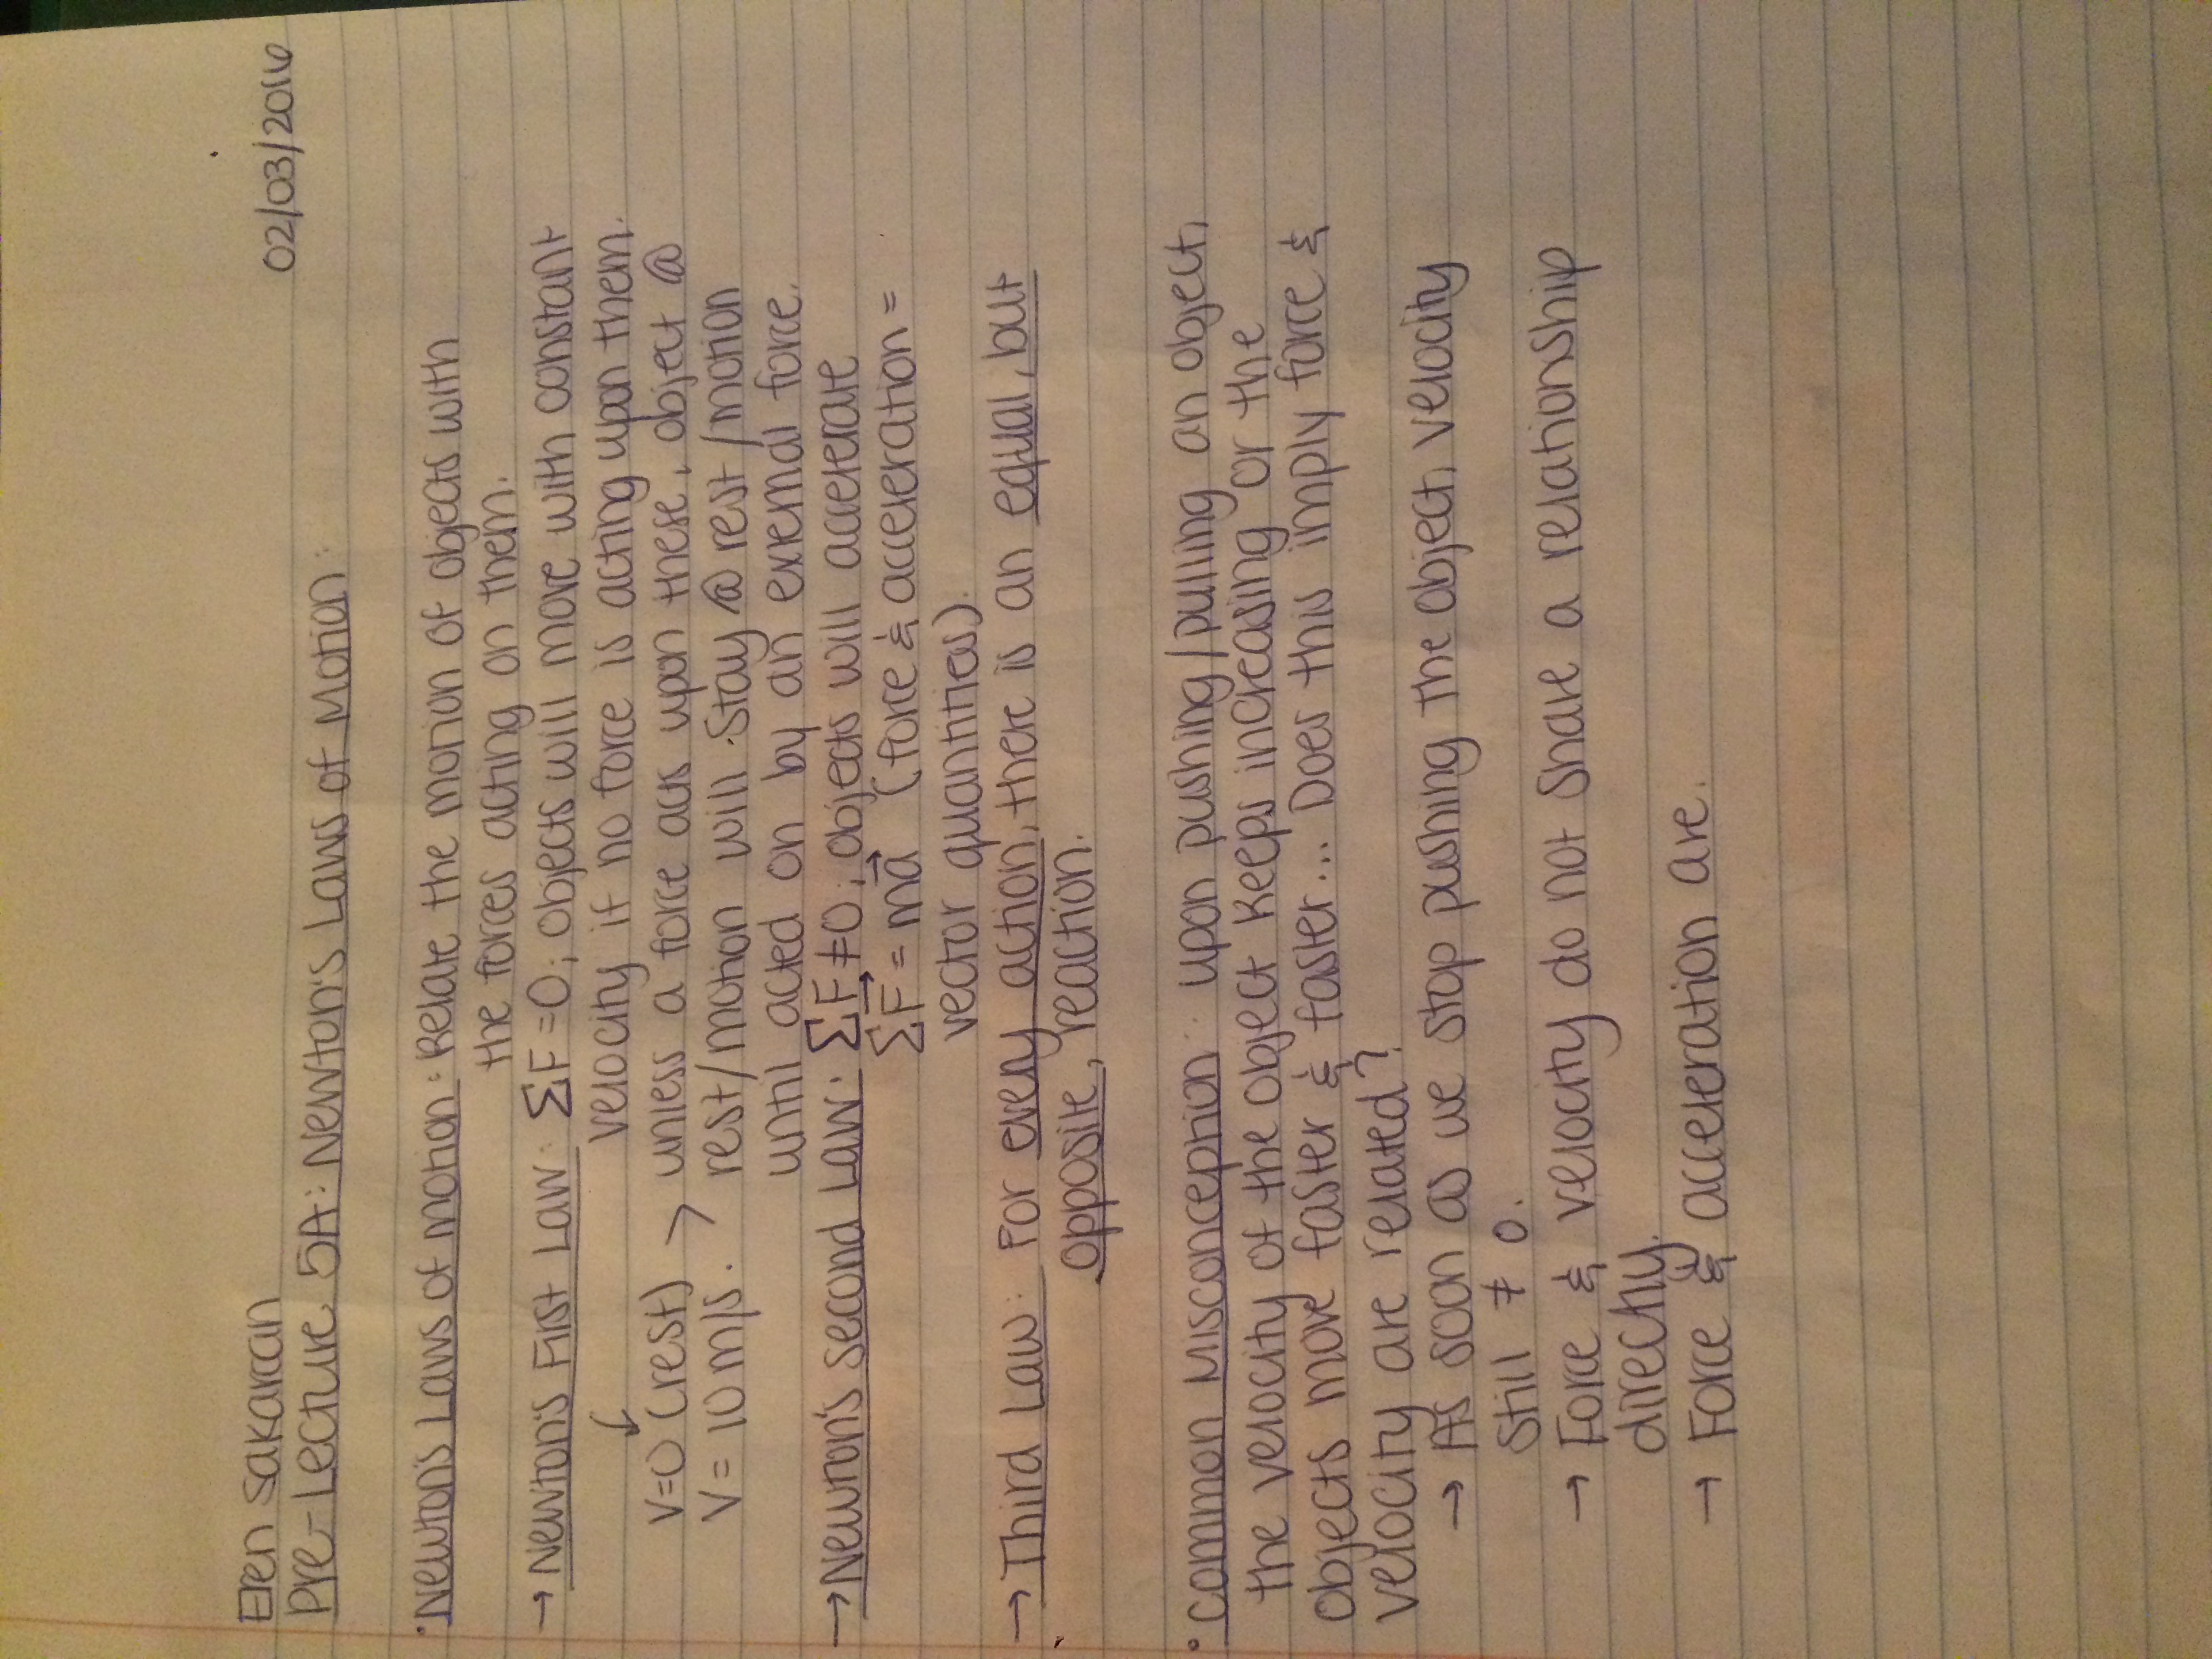 Eren Sakarcan
02/03/2016
Pre-Lecture 5A: Newton's Laws of Motion:
• Newton's Laws of motion: Relate the motion of objects with
the forces acting on them.
→ Newton's First Law: ΣF = 0; objects will move with constant
velocity if no force is acting upon them.
V=0 (rest) > unless a force acts upon these, object @
V = 10 m/s. > rest/motion will stay @ rest/motion
until acted on by an external force.
→ Newton's Second Law: ΣF ≠ 0; objects will accelerate
ΣF⃗ = ma⃗ (force & acceleration =
vector quantities).
→ Third Law: For every action, there is an equal, but
opposite, reaction.
• Common Misconception: upon pushing/pulling an object,
the velocity of the object keeps increasing or the
objects move faster & faster... Does this imply force &
velocity are related?
→ As soon as we stop pushing the object, velocity
still ≠ 0.
→ Force & velocity do not share a relationship
directly.
→ Force & acceleration are.